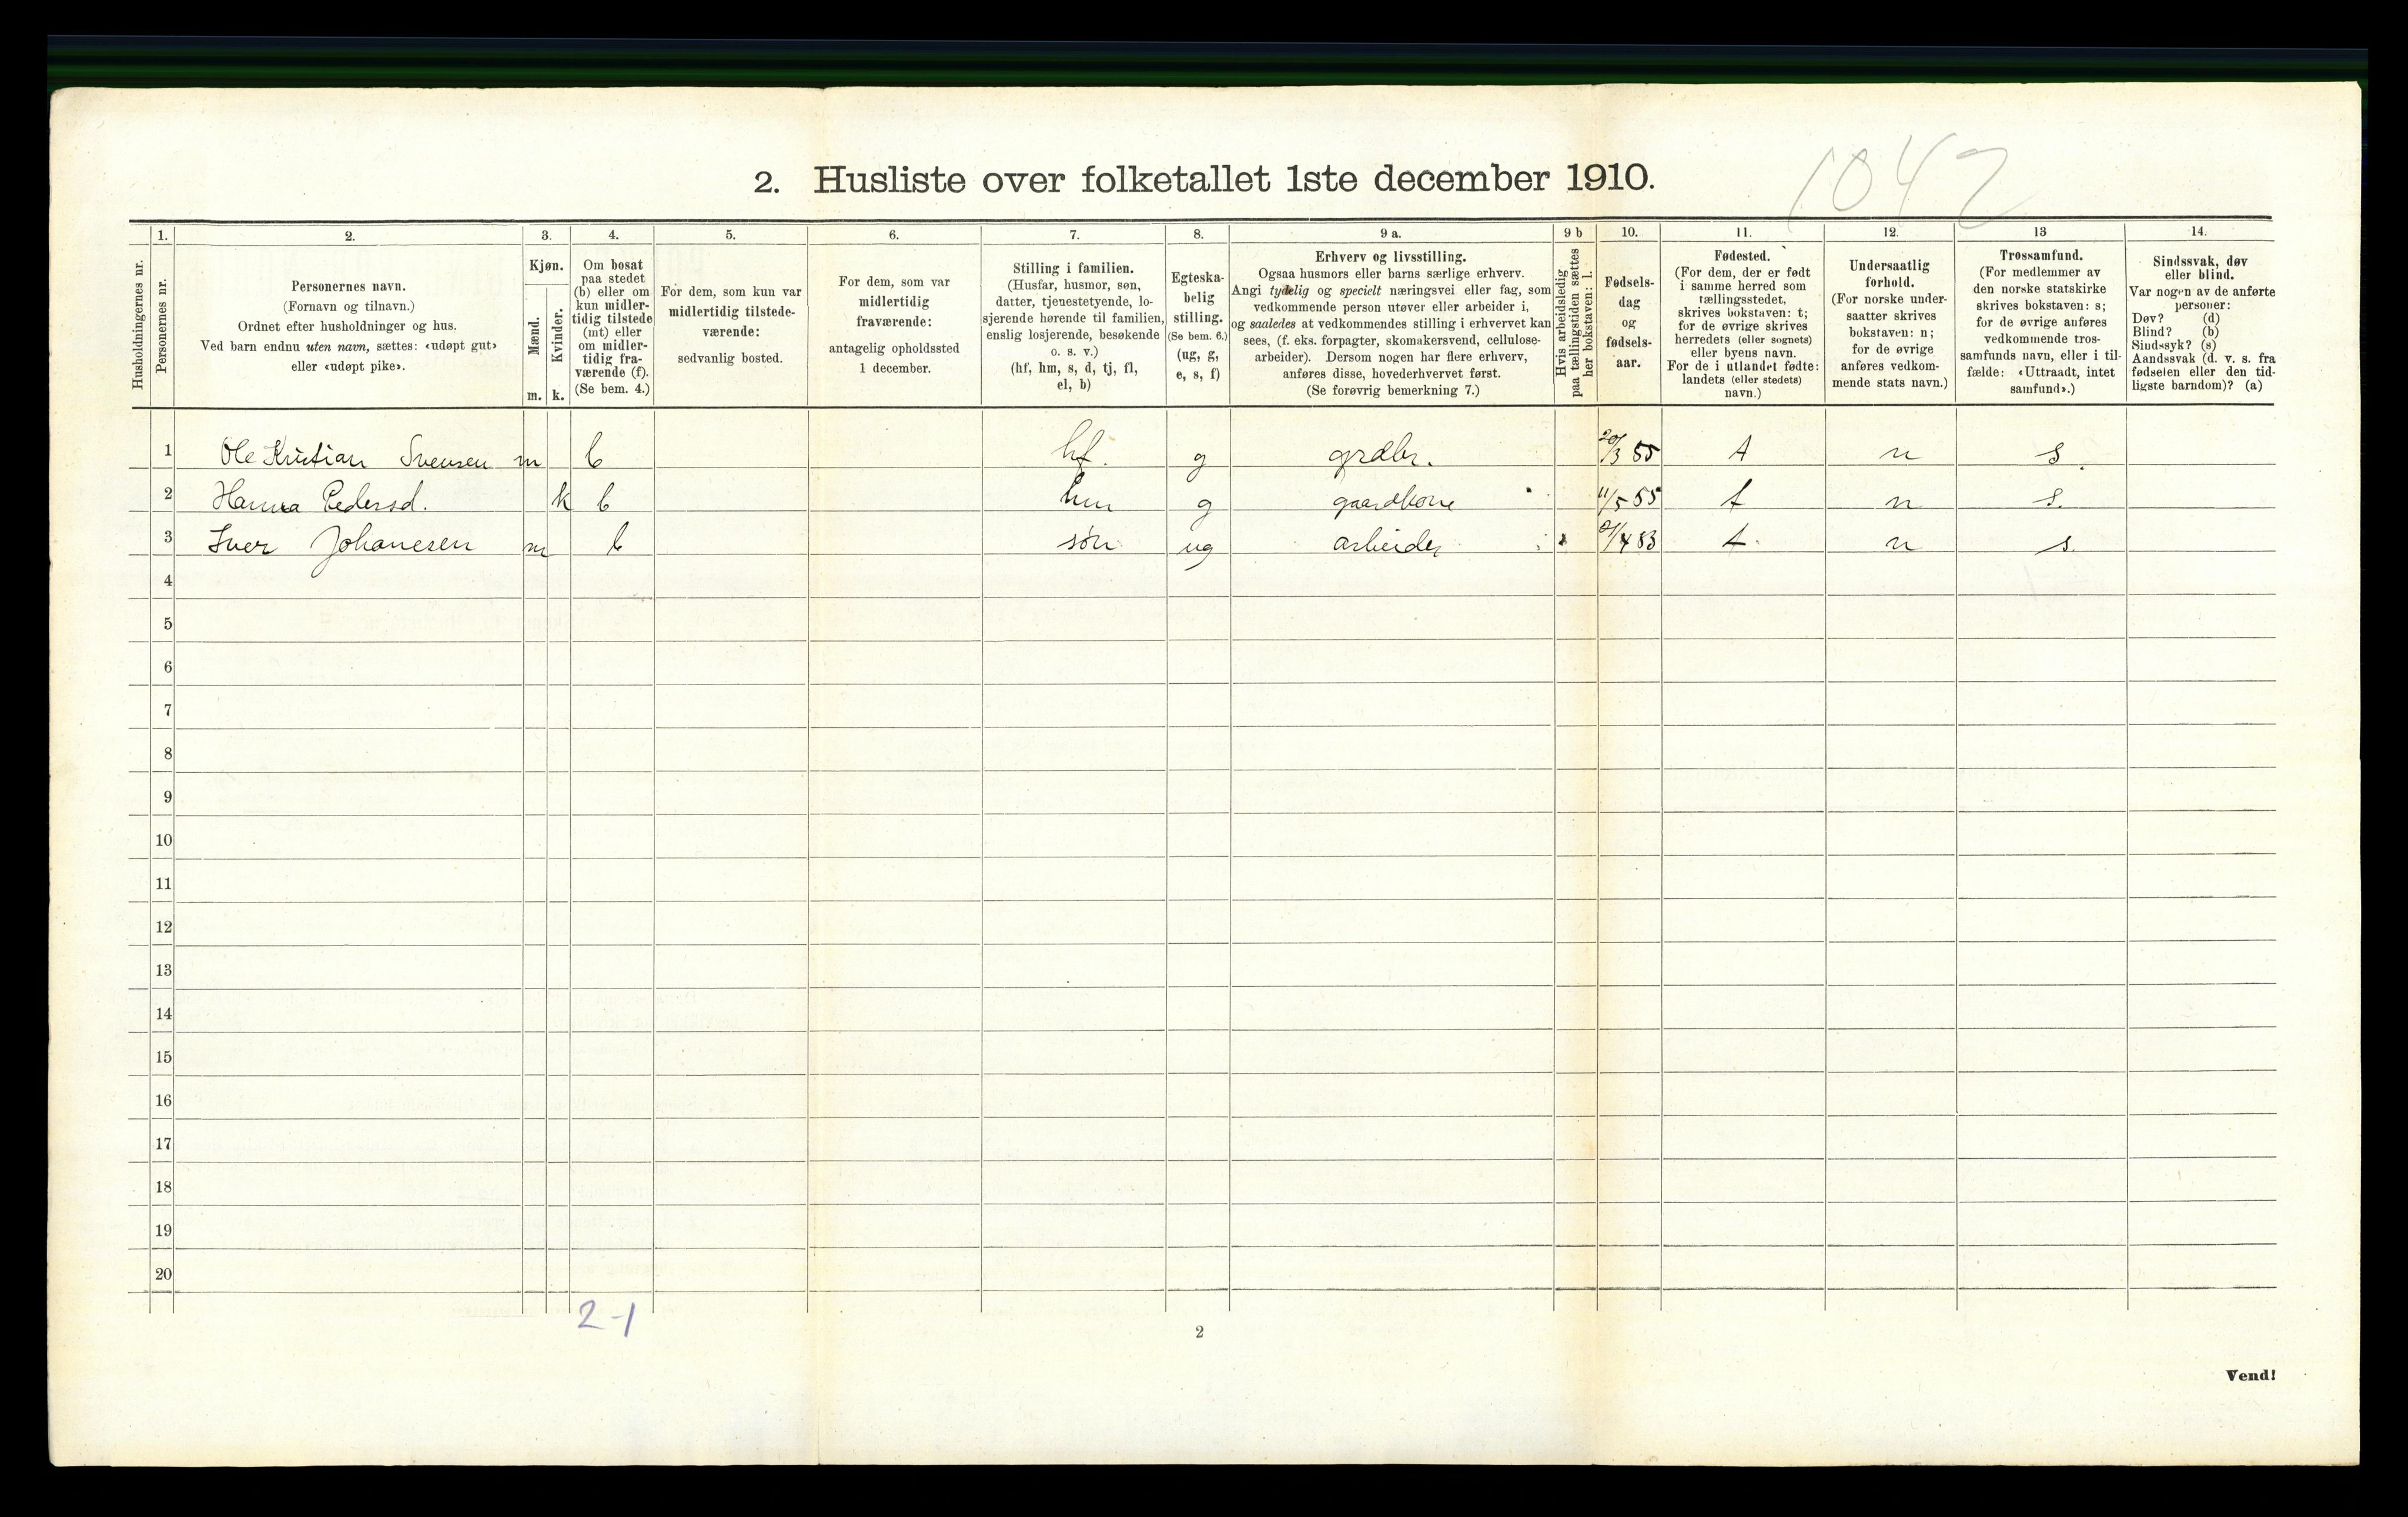 1042
2. Husliste over folketallet 1ste december 1910.
Husholdningernes nr.
1.
Personernes nr.
2.
Personernes navn.
(Fornavn og tilnavn.)
Ordnet efter husholdninger og hus.
Ved barn endnu uten navn, sættes: «udøpt gut»
eller «udøpt pike».
3.
Kjøn.
Mænd.
Kvinder.
m. k.
4.
Om bosat
paa stedet
(b) eller om
kun midler-
tidig tilstede
(mt) eller
om midler-
tidig fra-
værende (f).
(Se bem. 4.)
5.
For dem, som kun var
midlertidig tilstede-
værende:
sedvanlig bosted.
6.
For dem, som var
midlertidig
fraværende:
antagelig opholdssted
1 december.
7.
Stilling i familien.
(Husfar, husmor, søn,
datter, tjenestetyende, lo-
sjerende hørende til familien,
enslig losjerende, besøkende
o. s. v.)
(hf, hm, s, d, tj, fl,
el, b)
8.
Egteska-
belig
stilling.
(Se bem. 6.)
(ug, g,
e, s, f)
9 a.
Erhverv og livsstilling.
Ogsaa husmors eller barns særlige erhverv.
Angi tydelig og specielt næringsvei eller fag, som
vedkommende person utøver eller arbeider i,
og saaledes at vedkommendes stilling i erhvervet kan
sees, (f. eks. forpagter, skomakersvend, cellulose-
arbeider). Dersom nogen har flere erhverv,
anføres disse, hovederhvervet først.
(Se forøvrig bemerkning 7.)
9 b
Hvis arbeidsledig
paa tællingstiden sættes
her bokstaven: l.
10.
Fødsels-
dag
og
fødsels-
aar.
11.
Fødested.
(For dem, der er født
i samme herred som
tællingsstedet,
skrives bokstaven: t;
for de øvrige skrives
herredets (eller sognets)
eller byens navn.
For de i utlandet fødte:
landets (eller stedets)
navn.)
12.
Undersaatlig
forhold.
(For norske under-
saatter skrives
bokstaven: n;
for de øvrige
anføres vedkom-
mende stats navn.)
13
Trossamfund.
(For medlemmer av
den norske statskirke
skrives bokstaven: s;
for de øvrige anføres
vedkommende tros-
samfunds navn, eller i til-
fælde: «Uttraadt, intet
samfund».)
14.
Sindssvak, døv
eller blind.
Var nogen av de anførte
personer:
Døv? (d)
Blind? (b)
Sindssyk? (s)
Aandssvak (d. v. s. fra
fødselen eller den tid-
ligste barndom)? (a)
1 Ole Kristian Svensen m b hf. g grdbr. 20/3 55 t n s.
2 Hanna Pedersd. k b hm g gaardkone 11/5 55 t n s.
3 Iver Johanesen m b søn ug arbeider 21/4 83 t n s.
4
5
6
7
8
9
10
11
12
13
14
15
16
17
18
19
20
2-1
2
Vend!